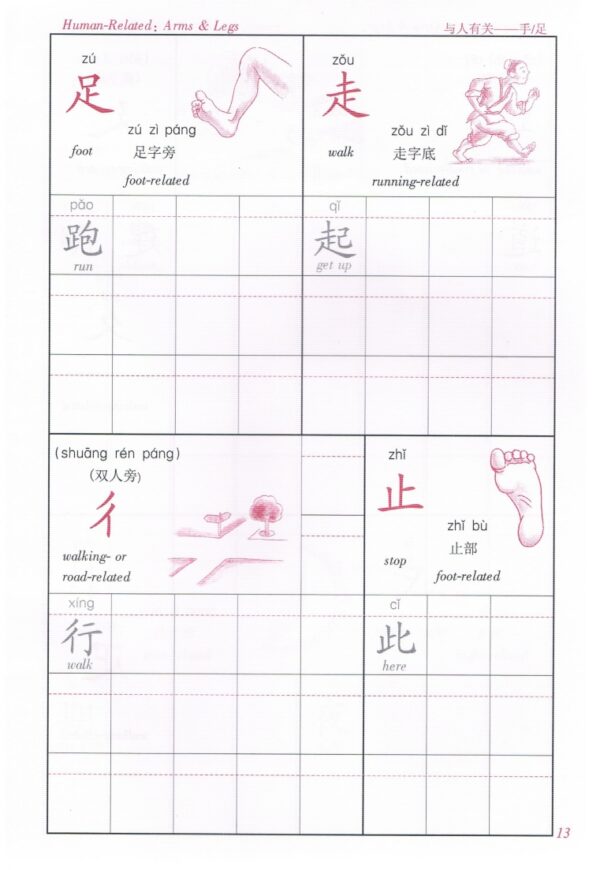 Human-Related: Arms & Legs
与人有关——手/足
zú
足
foot
zú zì páng
足字旁
foot-related
zǒu
走
walk
zǒu zì dǐ
走字底
running-related
pǎo
跑
run
qǐ
起
get up
(shuāng rén páng)
(双人旁)
彳
walking- or
road-related
zhǐ
止
stop
zhǐ bù
止部
foot-related
xíng
行
walk
cǐ
此
here
13